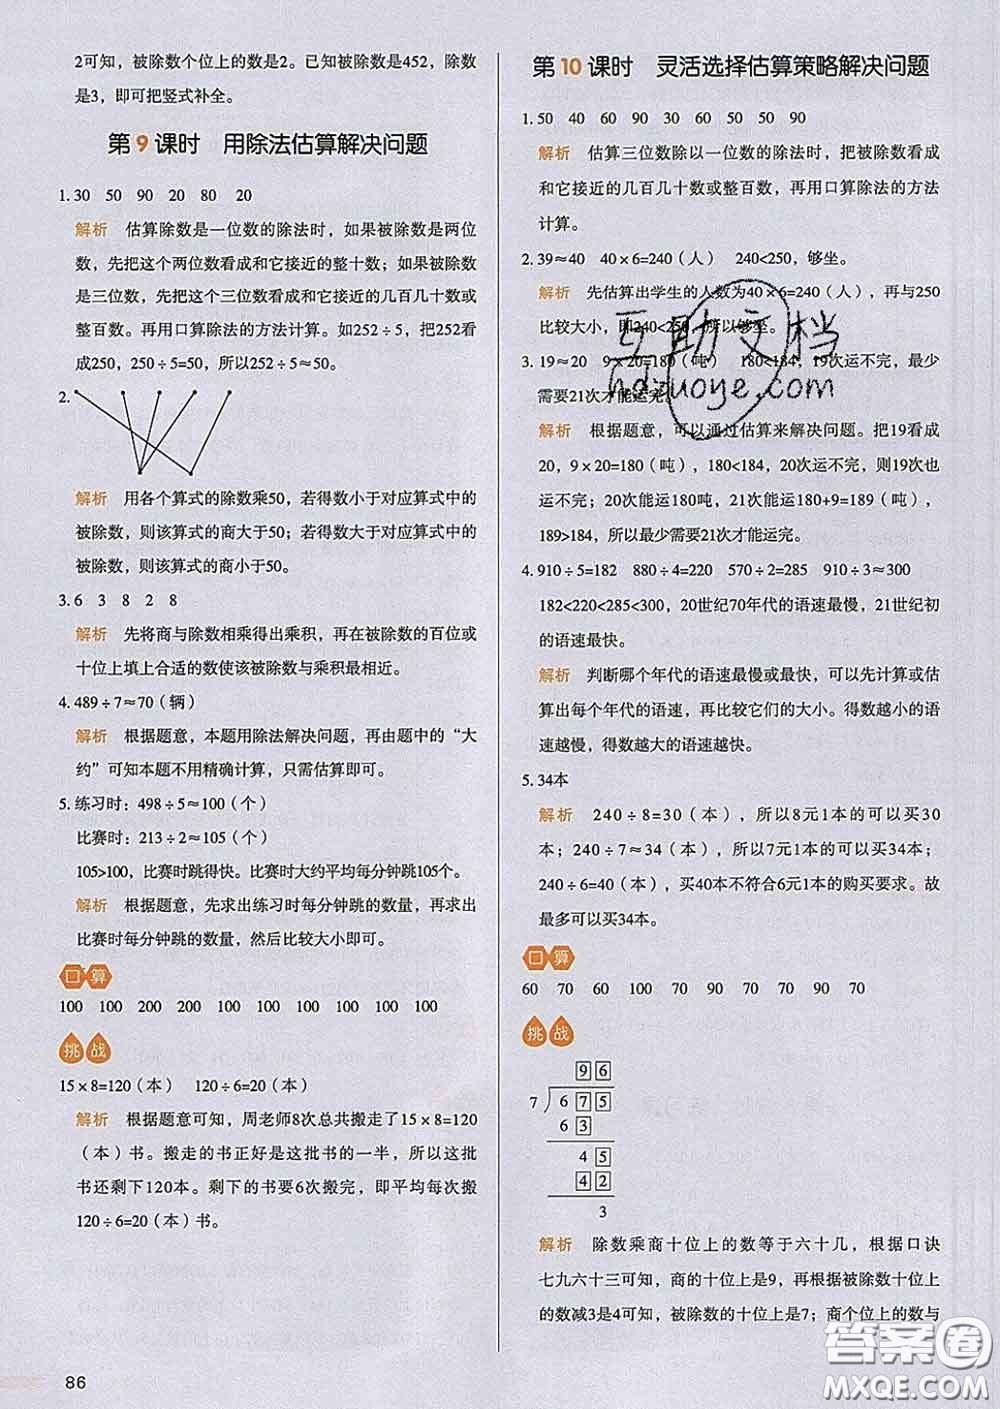 2可知，被除数个位上的数是2。已知被除数是452，除数
是3，即可把竖式补全。
第9课时　用除法估算解决问题
1.30　50　90　20　80　20
解析　估算除数是一位数的除法时，如果被除数是两位
数，先把这个两位数看成和它接近的整十数；如果被除数
是三位数，先把这个三位数看成和它接近的几百几十数或
整百数。再用口算除法的方法计算。如252÷5，把252看
成250，250÷5=50，所以252÷5≈50。
2.
解析　用各个算式的除数乘50，若得数小于对应算式中的
被除数，则该算式的商大于50；若得数大于对应算式中的
被除数，则该算式的商小于50。
3.6　3　8　2　8
解析　先将商与除数相乘得出乘积，再在被除数的百位或
十位上填上合适的数使该被除数与乘积最相近。
4.489÷7≈70（辆）
解析　根据题意，本题用除法解决问题，再由题中的“大
约”可知本题不用精确计算，只需估算即可。
5.练习时：498÷5≈100（个）
比赛时：213÷2≈105（个）
105>100，比赛时跳得快。比赛时大约平均每分钟跳105个。
解析　根据题意，先求出练习时每分钟跳的数量，再求出
比赛时每分钟跳的数量，然后比较大小即可。
口算
100　100　200　200　100　100　100　100　100　100
挑战
15×8=120（本）　120÷6=20（本）
解析　根据题意可知，周老师8次总共搬走了15×8=120
（本）书。搬走的书正好是这批书的一半，所以这批
书还剩下120本。剩下的书要6次搬完，即平均每次搬
120÷6=20（本）书。
86
第10课时　灵活选择估算策略解决问题
1.50　40　60　90　30　60　50　50　90
解析　估算三位数除以一位数的除法时，把被除数看成
和它接近的几百几十数或整百数，再用口算除法的方法
计算。
2.39≈40　40×6=240（人）　240<250，够坐。
解析　先估算出学生的人数为40×6=240（人），再与250
比较大小，即240<250，所以够坐。
3.19≈20　9×20=180（吨）　180<184，19次运不完，最少
需要21次才能运完。
解析　根据题意，可以通过估算来解决问题。把19看成
20，9×20=180（吨），180<184，20次运不完，则19次也
运不完；20次能运180吨，21次能运180+9=189（吨），
189>184，所以最少需要21次才能运完。
4.910÷5=182　880÷4=220　570÷2=285　910÷3≈300
182<220<285<300，20世纪70年代的语速最慢，21世纪初
的语速最快。
解析　判断哪个年代的语速最慢或最快，可以先计算或估
算出每个年代的语速，再比较它们的大小。得数越小的语
速越慢，得数越大的语速越快。
5.34本
解析　240÷8=30（本），所以8元1本的可以买30
本；240÷7≈34（本），所以7元1本的可以买34本；
240÷6=40（本），买40本不符合6元1本的购买要求。故
最多可以买34本。
口算
60　70　60　100　70　90　70　90　70
挑战
96
7 675
63
45
42
3
解析　除数乘商十位上的数等于六十几，根据口诀
七九六十三可知，商的十位上是9，再根据被除数十位上
的数减3是4可知，被除数的十位上是7；商个位上的数与
互助文档
hdzuoye.com
答案圈
MXQE.COM